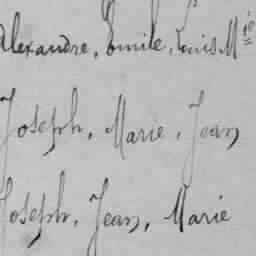 Alexandre, Emile, Louis Mie
Joseph, Marie, Jean
Joseph, Jean, Marie